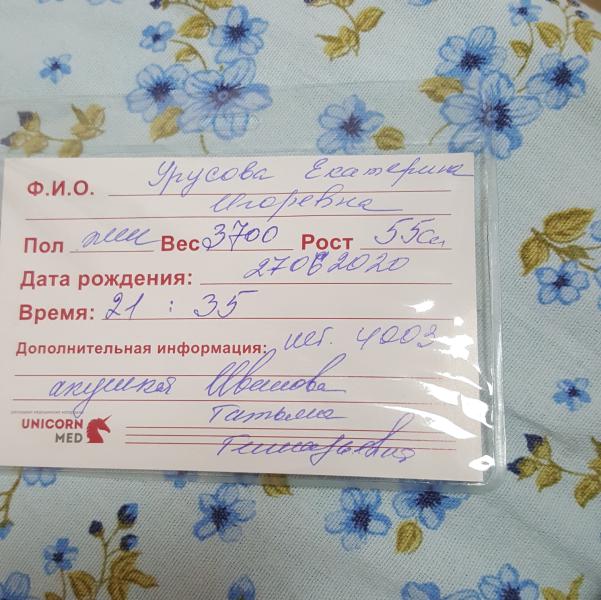 Ф.И.О. Урусова Екатерина
Игоревна
Пол жен Вес 3700 Рост 55см
Дата рождения: 27062020
Время: 21 : 35
Дополнительная информация: ист. 4003
акушерка Иванова
Татьяна
UNICORN
MED